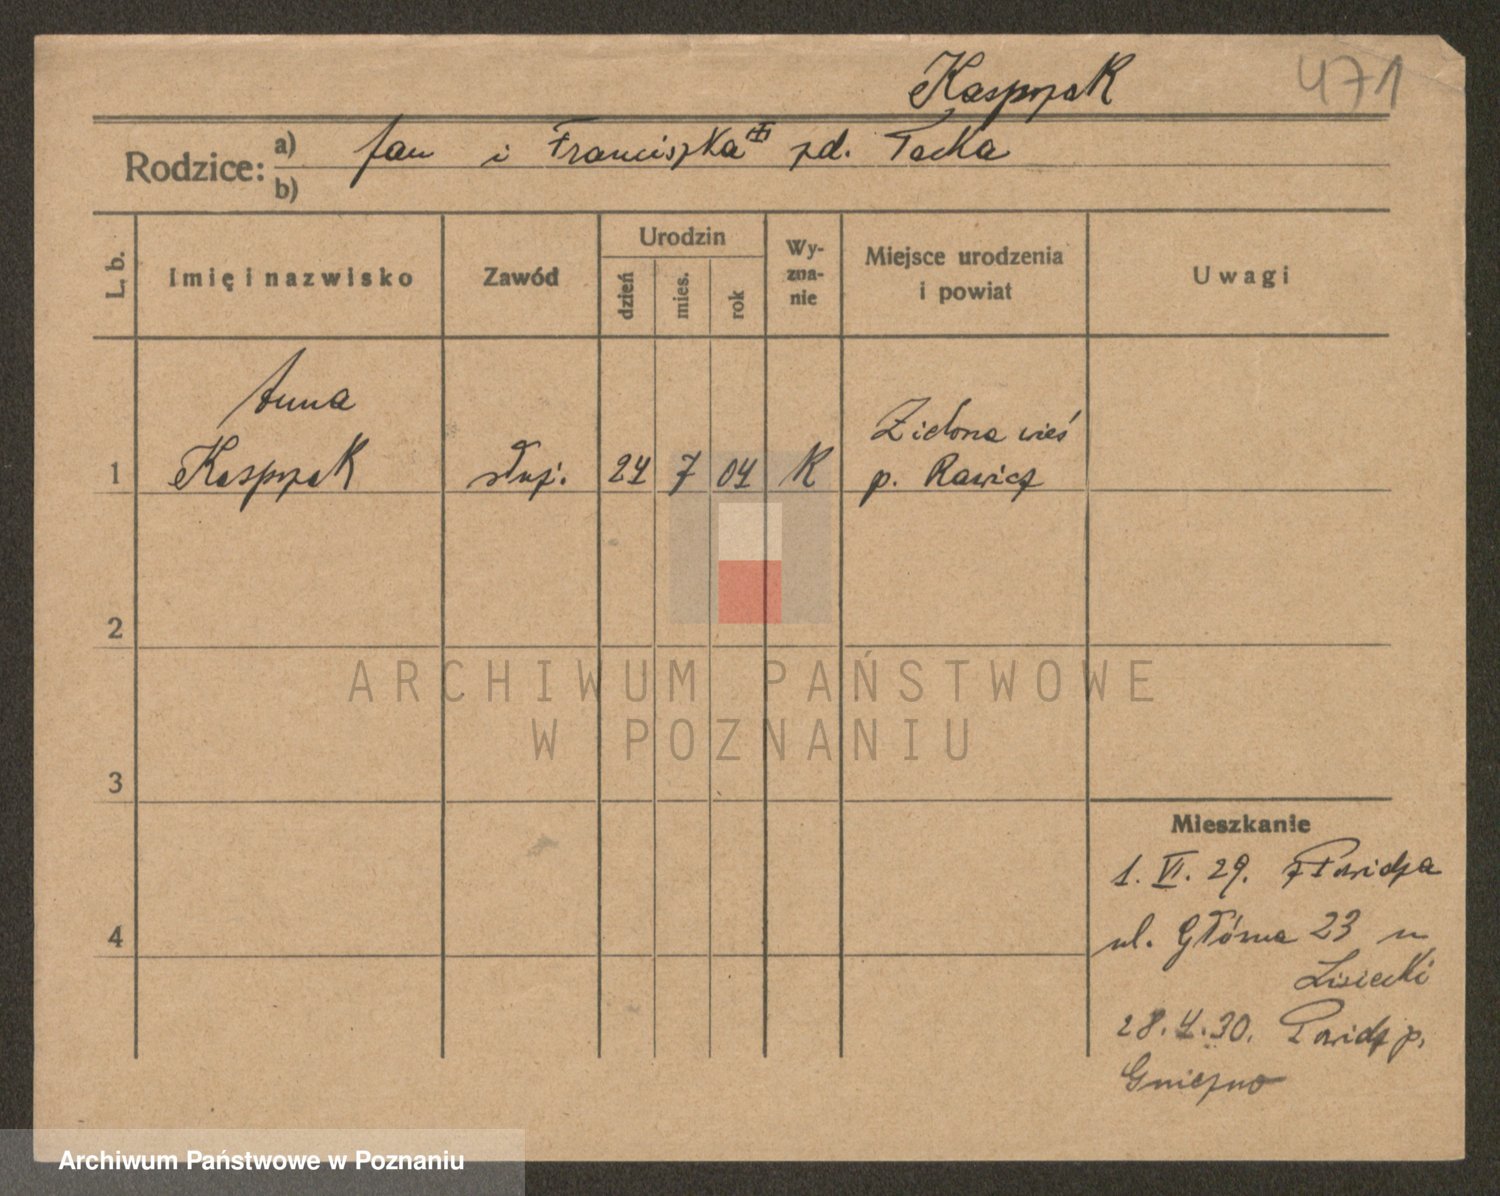 Kasprzak
471
Rodzice: a) Jan i Franciszka zd.
b)
L. b.
Imię i nazwisko
Zawód
Urodzin
dzień
mies.
rok
Wy-
zna-
nie
Miejsce urodzenia
i powiat
Uwagi
Anna
Kasprzak służ. 24 7 04 K Zielona wieś
1 p. Rawicz
2
3
4
Mieszkanie
1. VI. 29. z Powidza
ul. Główna 23 u
Lisiecki
28.4.30. Powidz p.
Gniezno
ARCHIWUM PAŃSTWOWE
W POZNANIU
Archiwum Państwowe w Poznaniu